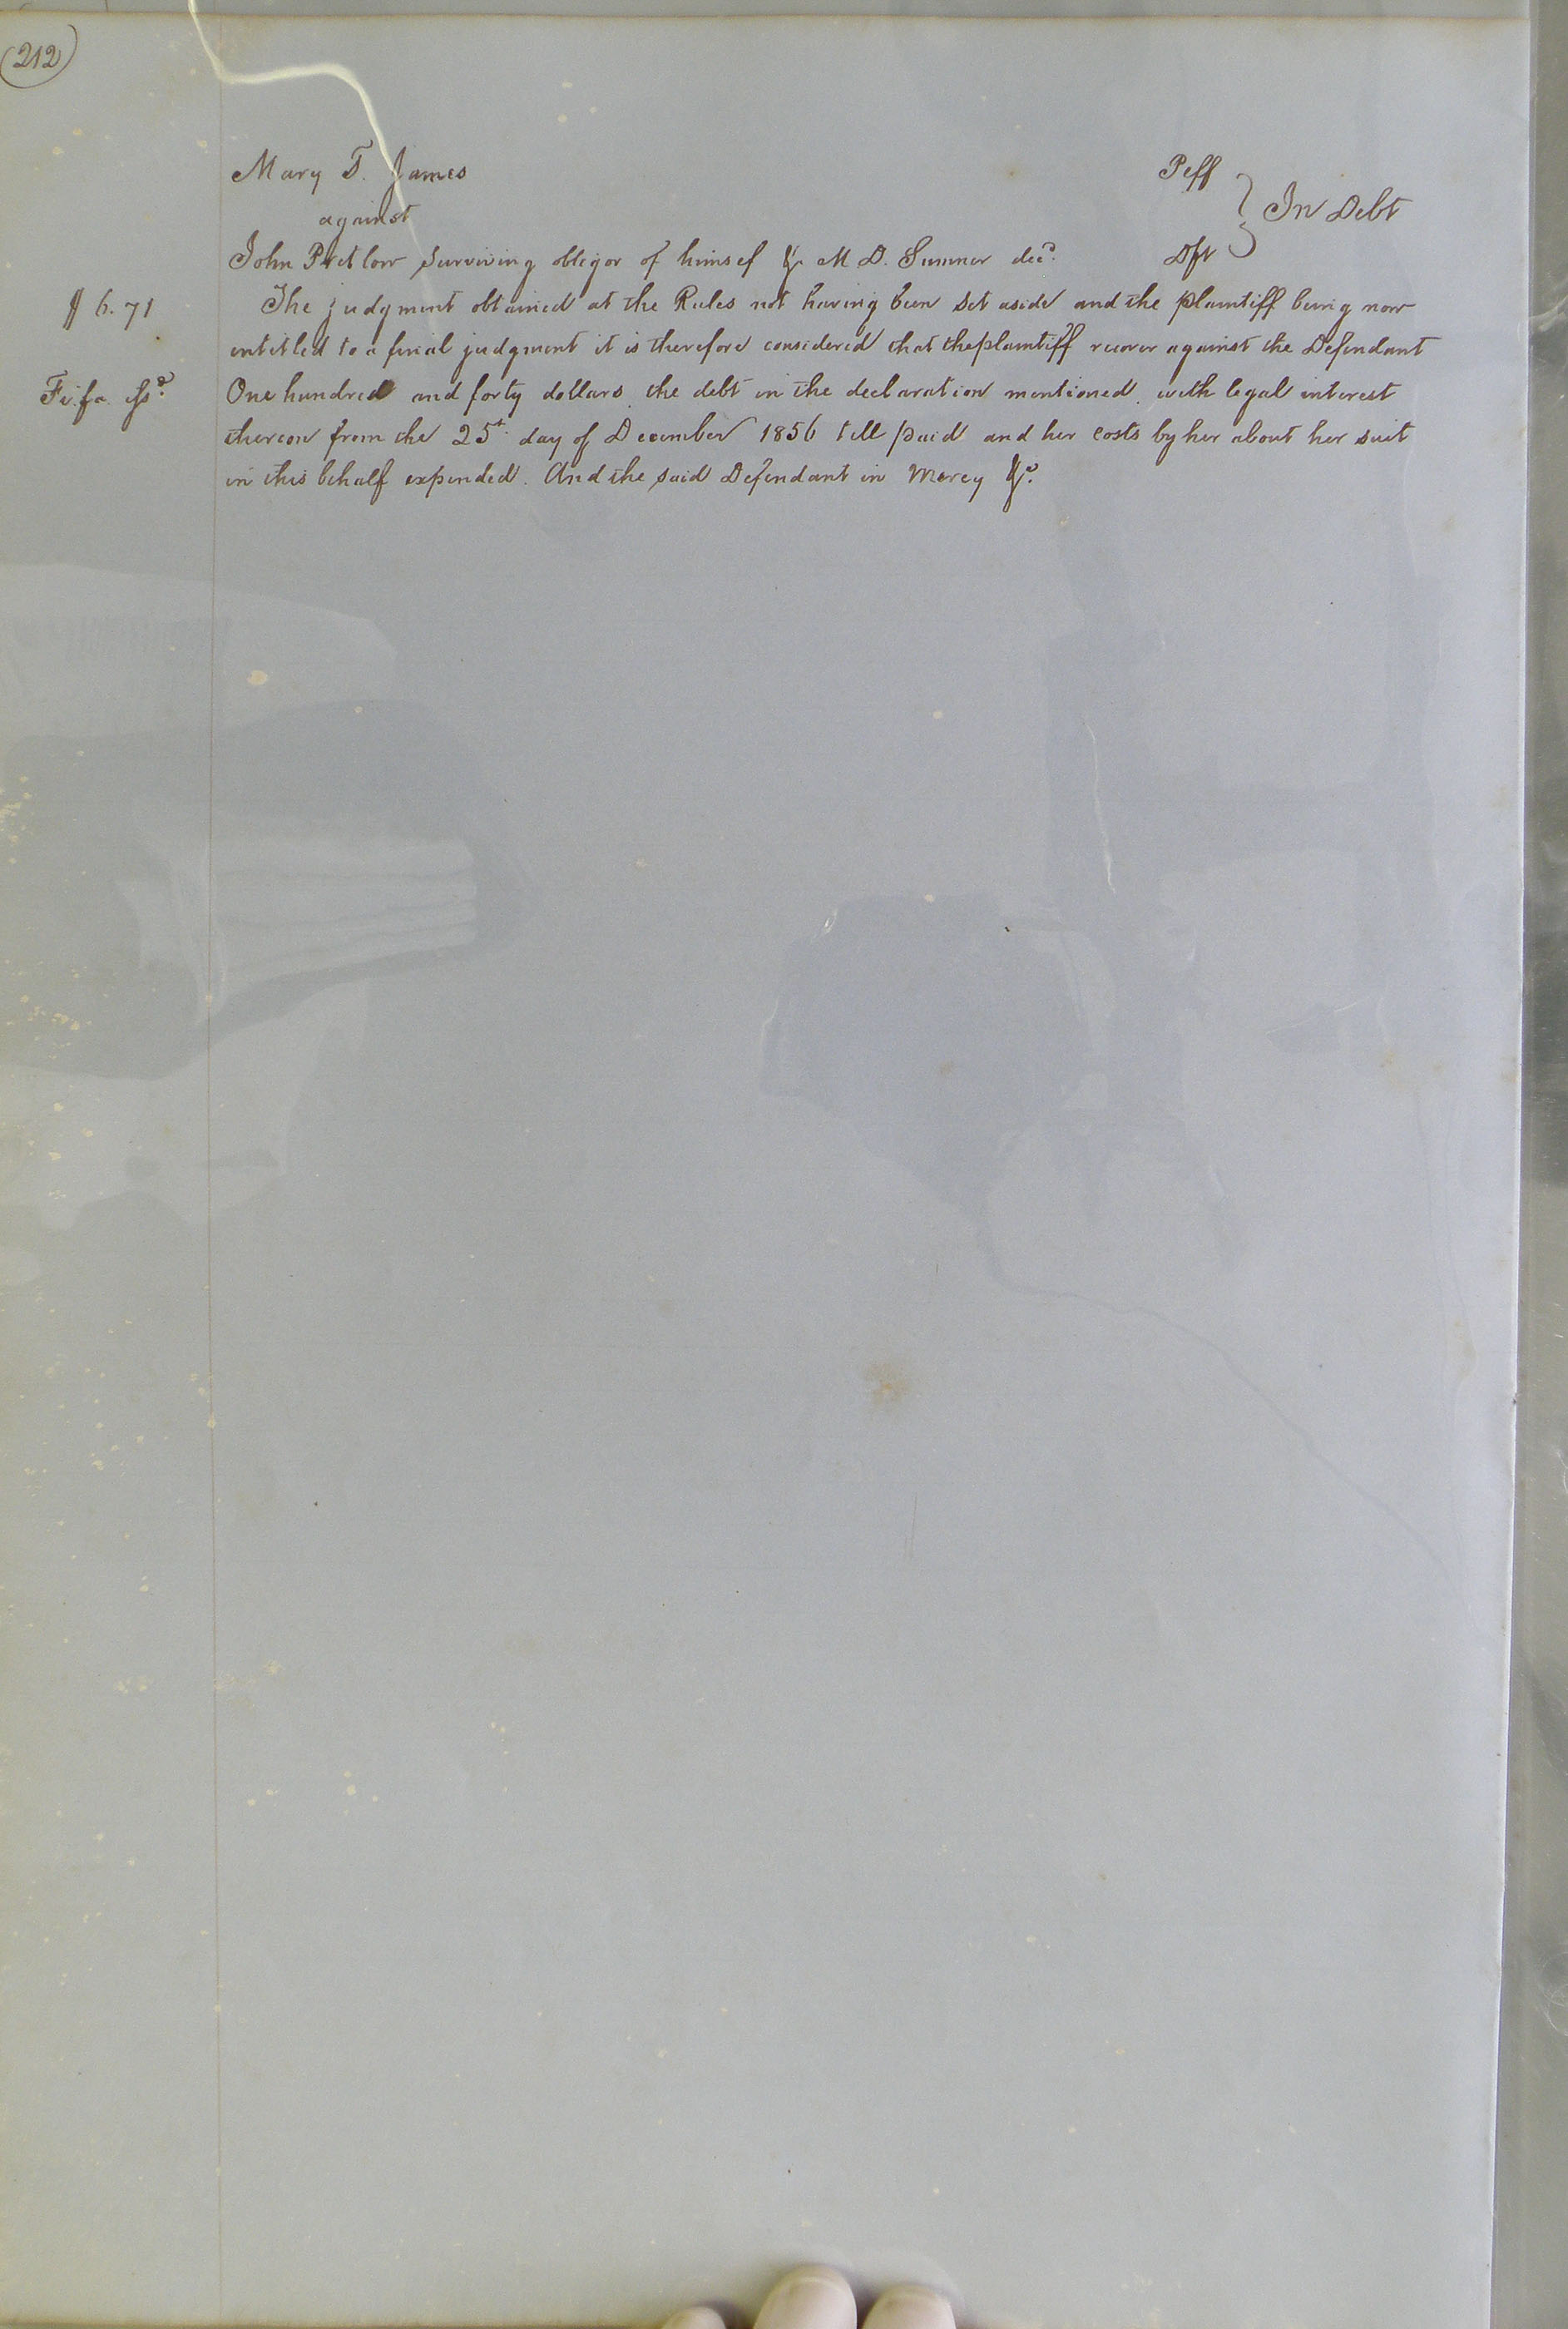 (212)
Mary T. James Peff
against } In Debt
John Pretlow surviving obligor of himsef & M D. Sumner decd. Dft
$ 6.71 The judgment obtained at the Rules not having been set aside and the plaintiff being now
entitled to a final judgment it is therefore considered that the plaintiff recover against the Defendant
Fi. fa. issd. One hundred and forty dollars, the debt in the declaration mentioned, with legal interest
thereon from the 25t. day of December 1856 till paid and her costs by her about her suit
in this behalf expended. And the said Defendant in Mercy &c.